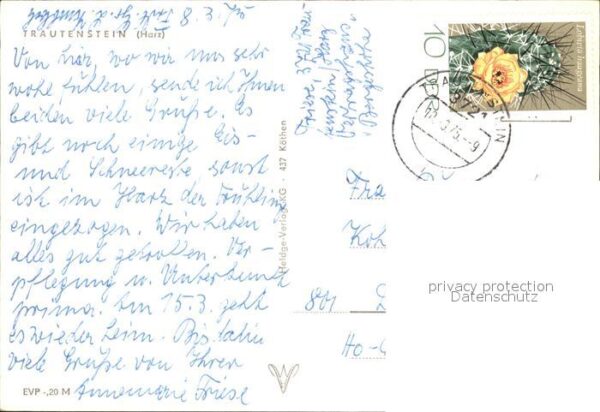 TRAUTENSTEIN (Harz)
Von hier, wo wir uns sehr
wohl fühlen, sende ich Ihnen
beiden viele Grüße. Es
gibt noch einige Eis-
und Schneereste, sonst
ist im Harz der Frühling
eingezogen. Wir haben
alles gut getroffen. Ver-
pflegung u. Unterkunft
prima. Am 15.3. geht
es wieder heim. Bis dahin
viele Grüße von Ihrer
Annemarie Friese
EVP -,20 M
Heldge-Verlag KG · 437 Köthen
Friese, 3721
10 DDR
Lobivia haageana
3721
-9
Fra
Koh
801
Ho-
privacy protection
Datenschutz